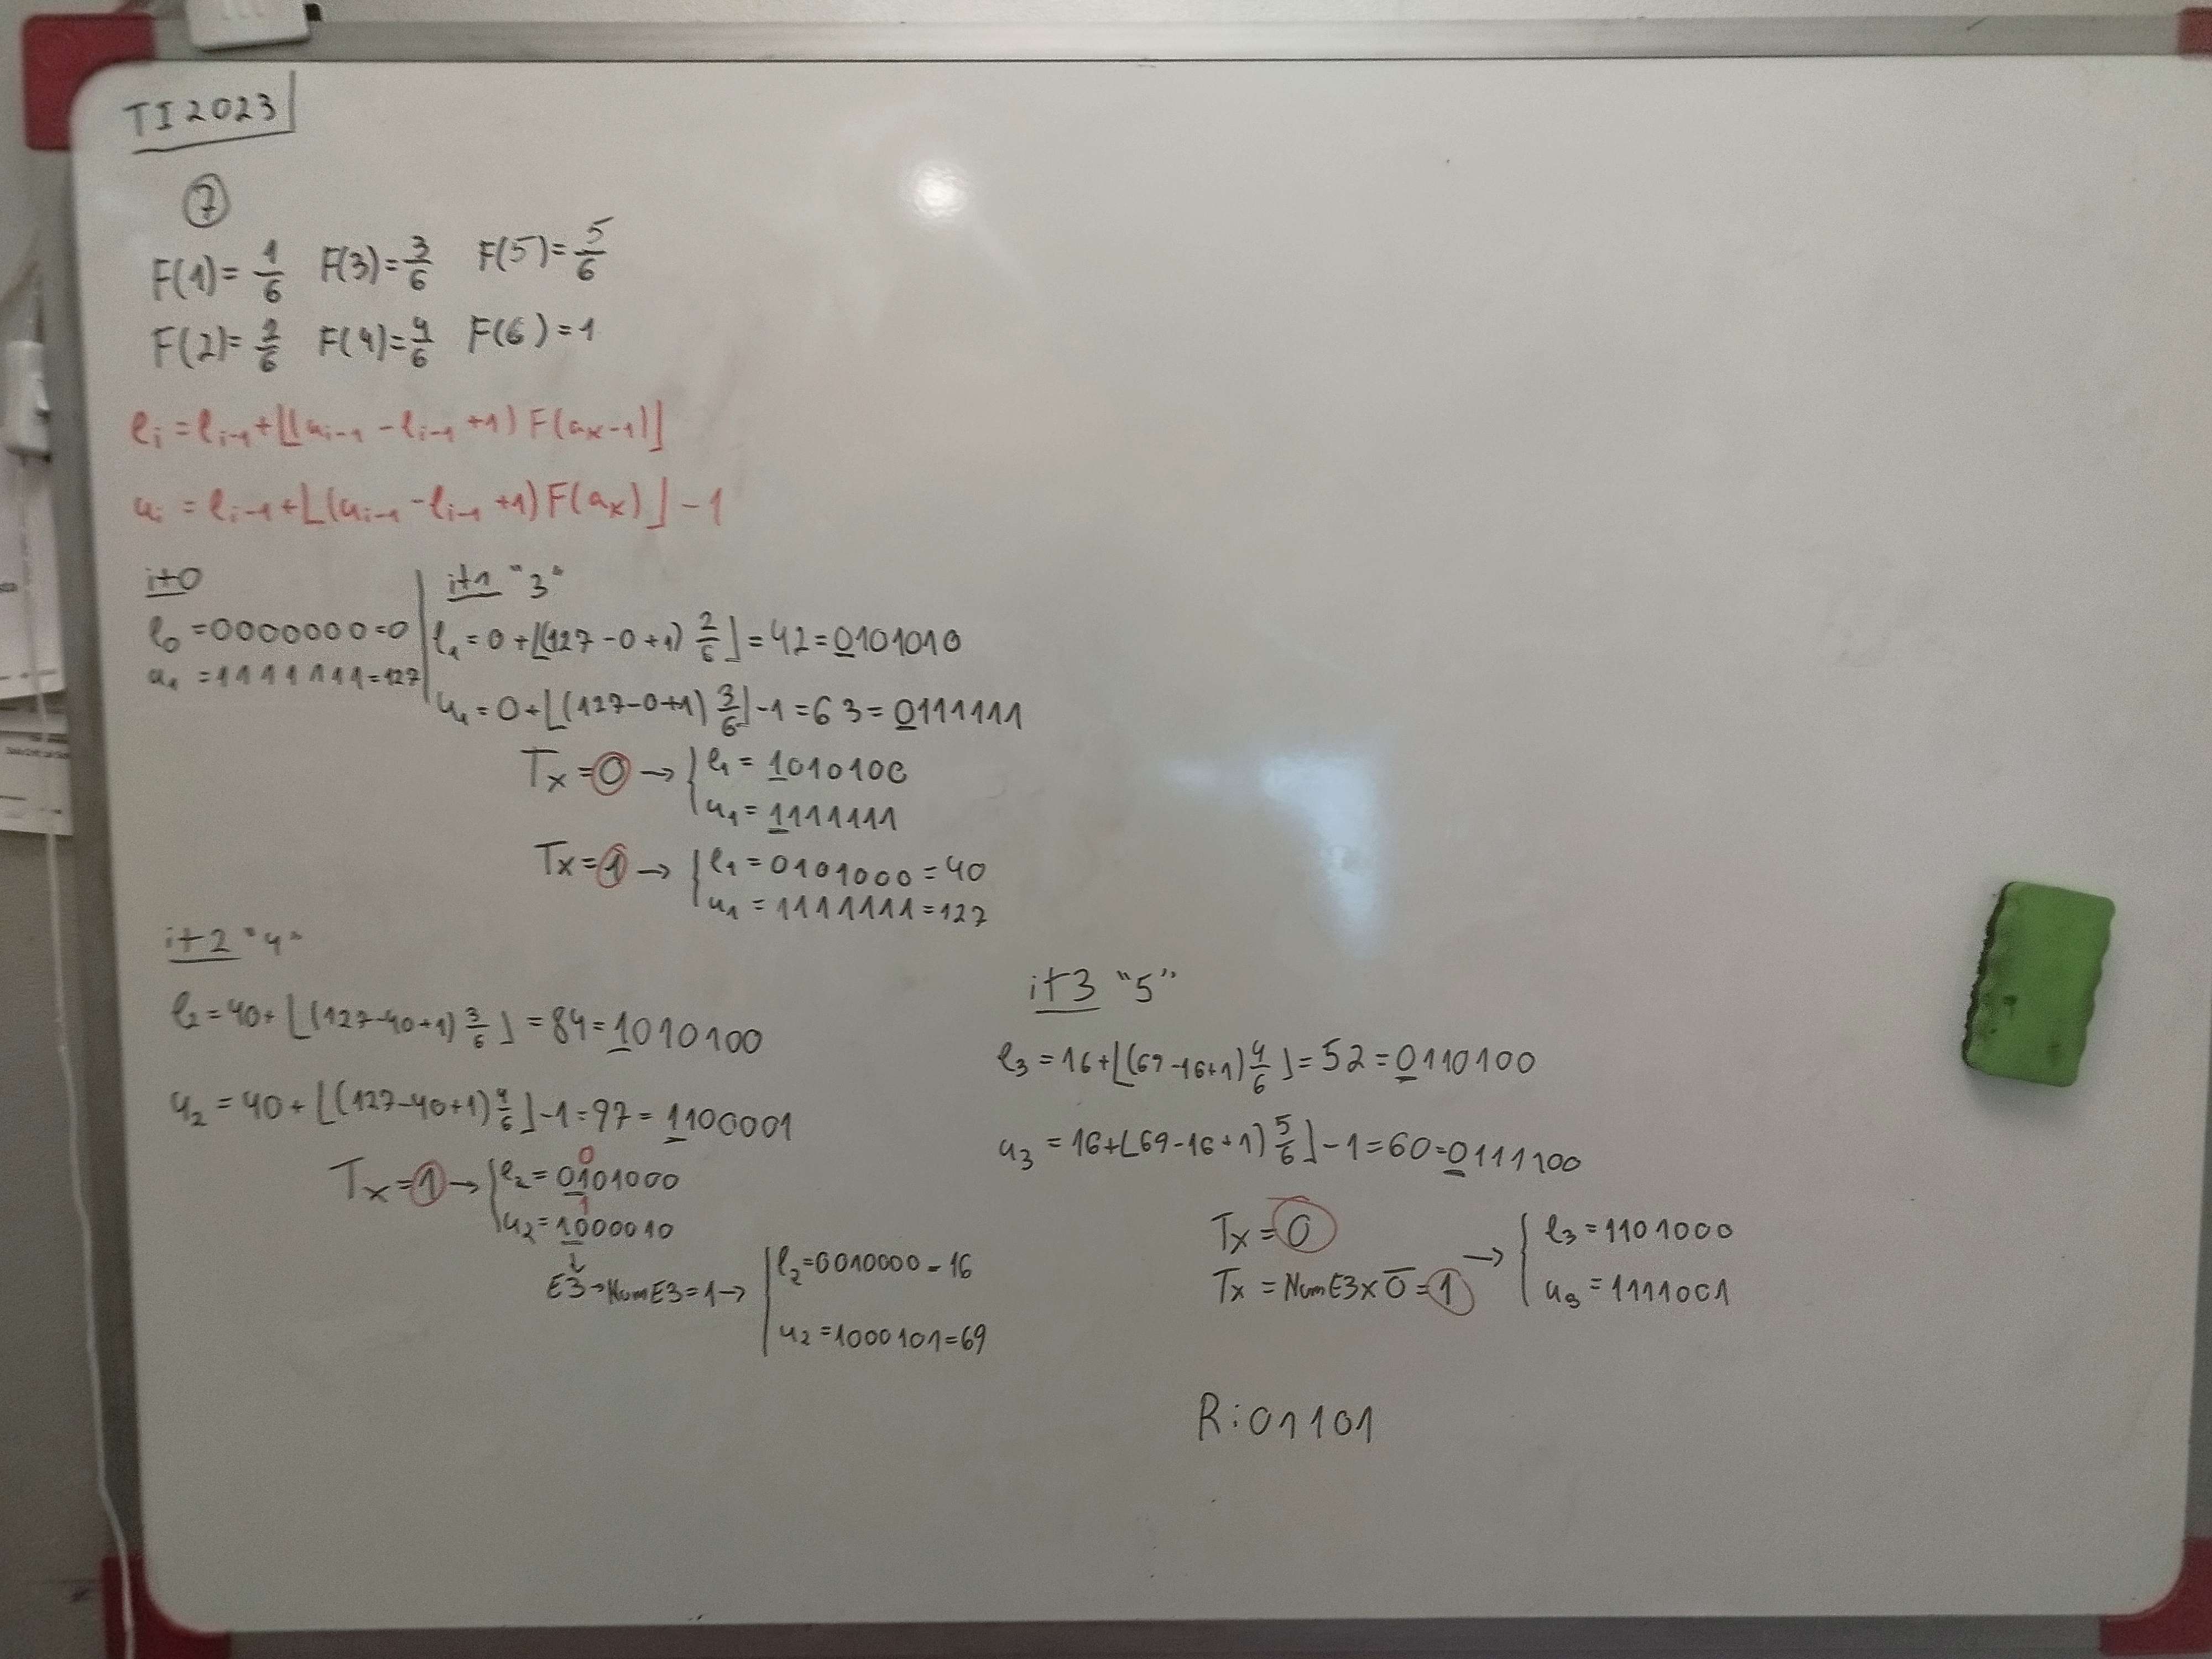 TI2023
7
F(1)= 1/6 F(3)= 3/6 F(5)= 5/6
F(2)= 2/6 F(4)= 4/6 F(6)=1
ℓi = ℓi-1+⌊(ui-1 -ℓi-1 +1) F(ax-1)⌋
ui = ℓi-1+⌊(ui-1 -ℓi-1 +1) F(ax)⌋ -1
it0
ℓ0 =0000000=0
u1 =1111111=127
it1 "3"
ℓ1=0+⌊(127-0+1) 2/6⌋=42=0101010
u1=0+⌊(127-0+1) 3/6⌋-1=63=0111111
Tx=0→{ℓ1= 1010100
u1= 1111111
Tx=1→{ℓ1=0101000=40
u1 =1111111=127
it2 "4"
ℓ2=40+⌊(127-40+1) 3/6⌋=84=1010100
u2=40+⌊(127-40+1) 4/6⌋-1=97=1100001
0
Tx=1→{ℓ2=0101000
1
u2=1000010
↓
E3→NumE3=1→{ℓ2=0010000=16
u2=1000101=69
it3 "5"
ℓ3=16+⌊(69-16+1) 4/6⌋=52=0110100
u3=16+⌊69-16+1) 5/6⌋-1=60=0111100
Tx=0
Tx = NumE3x0̅=1 →{ℓ3=1101000
u3=1111001
R:01101